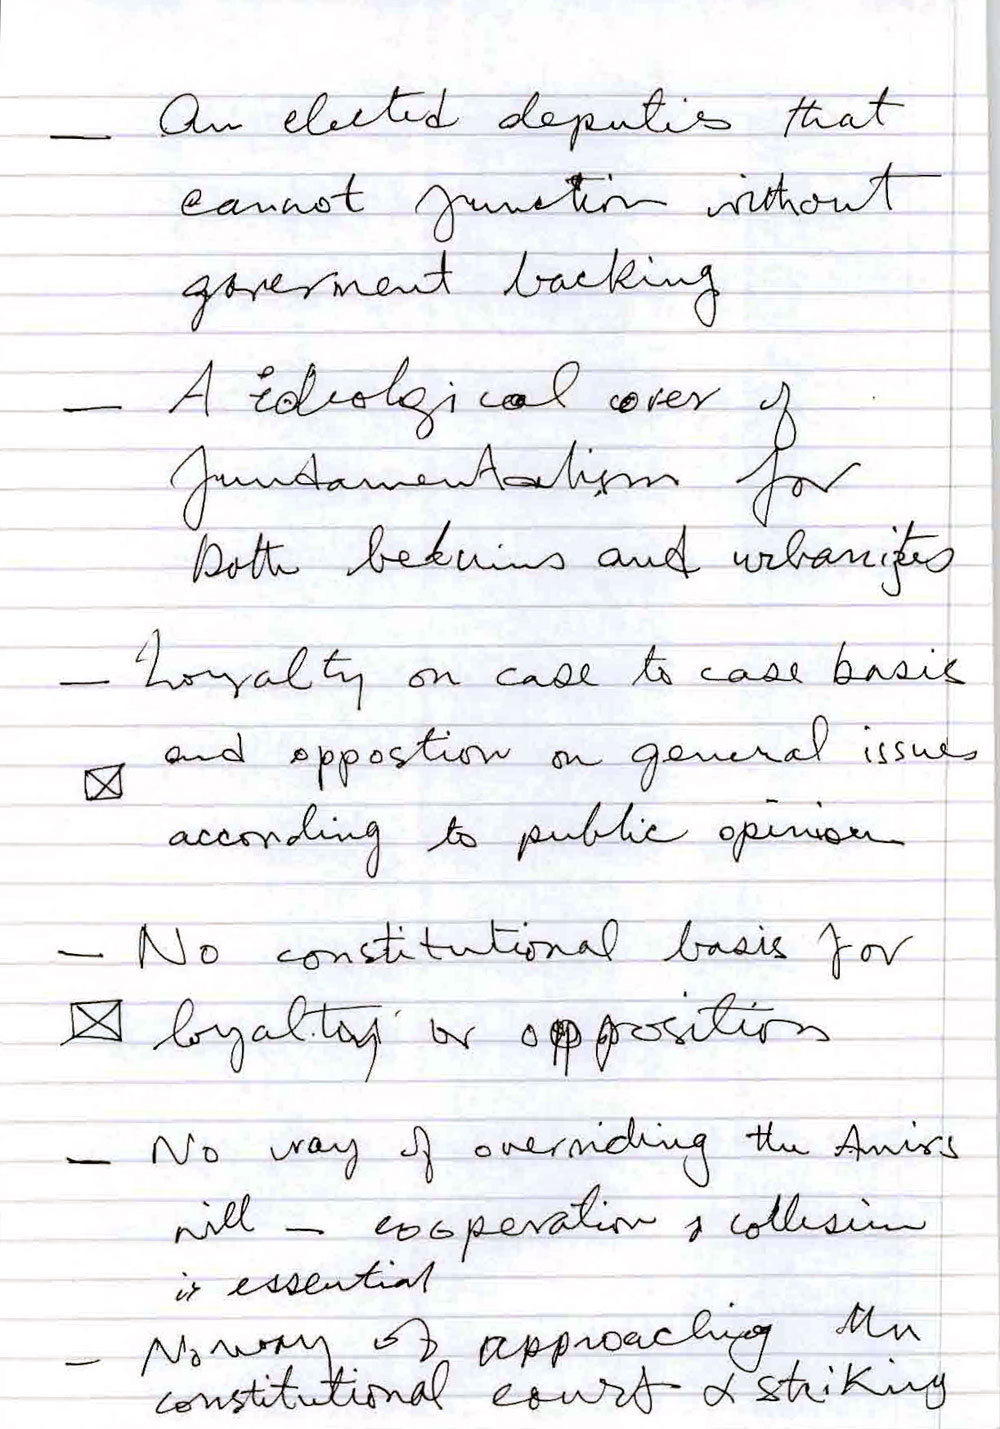 — An elected deputies that
cannot function without
goverment backing
— A ideological cover of
fundamentalism for
both beduins and urbanites
— Loyalty on case to case basis
and oppostion on general issues
according to public opinion
— No constitutional basis for
loyalty or opposition
— No way of overriding the Amirs
will — cooperation & collision
is essential
— No way of approaching the
constitutional court & striking